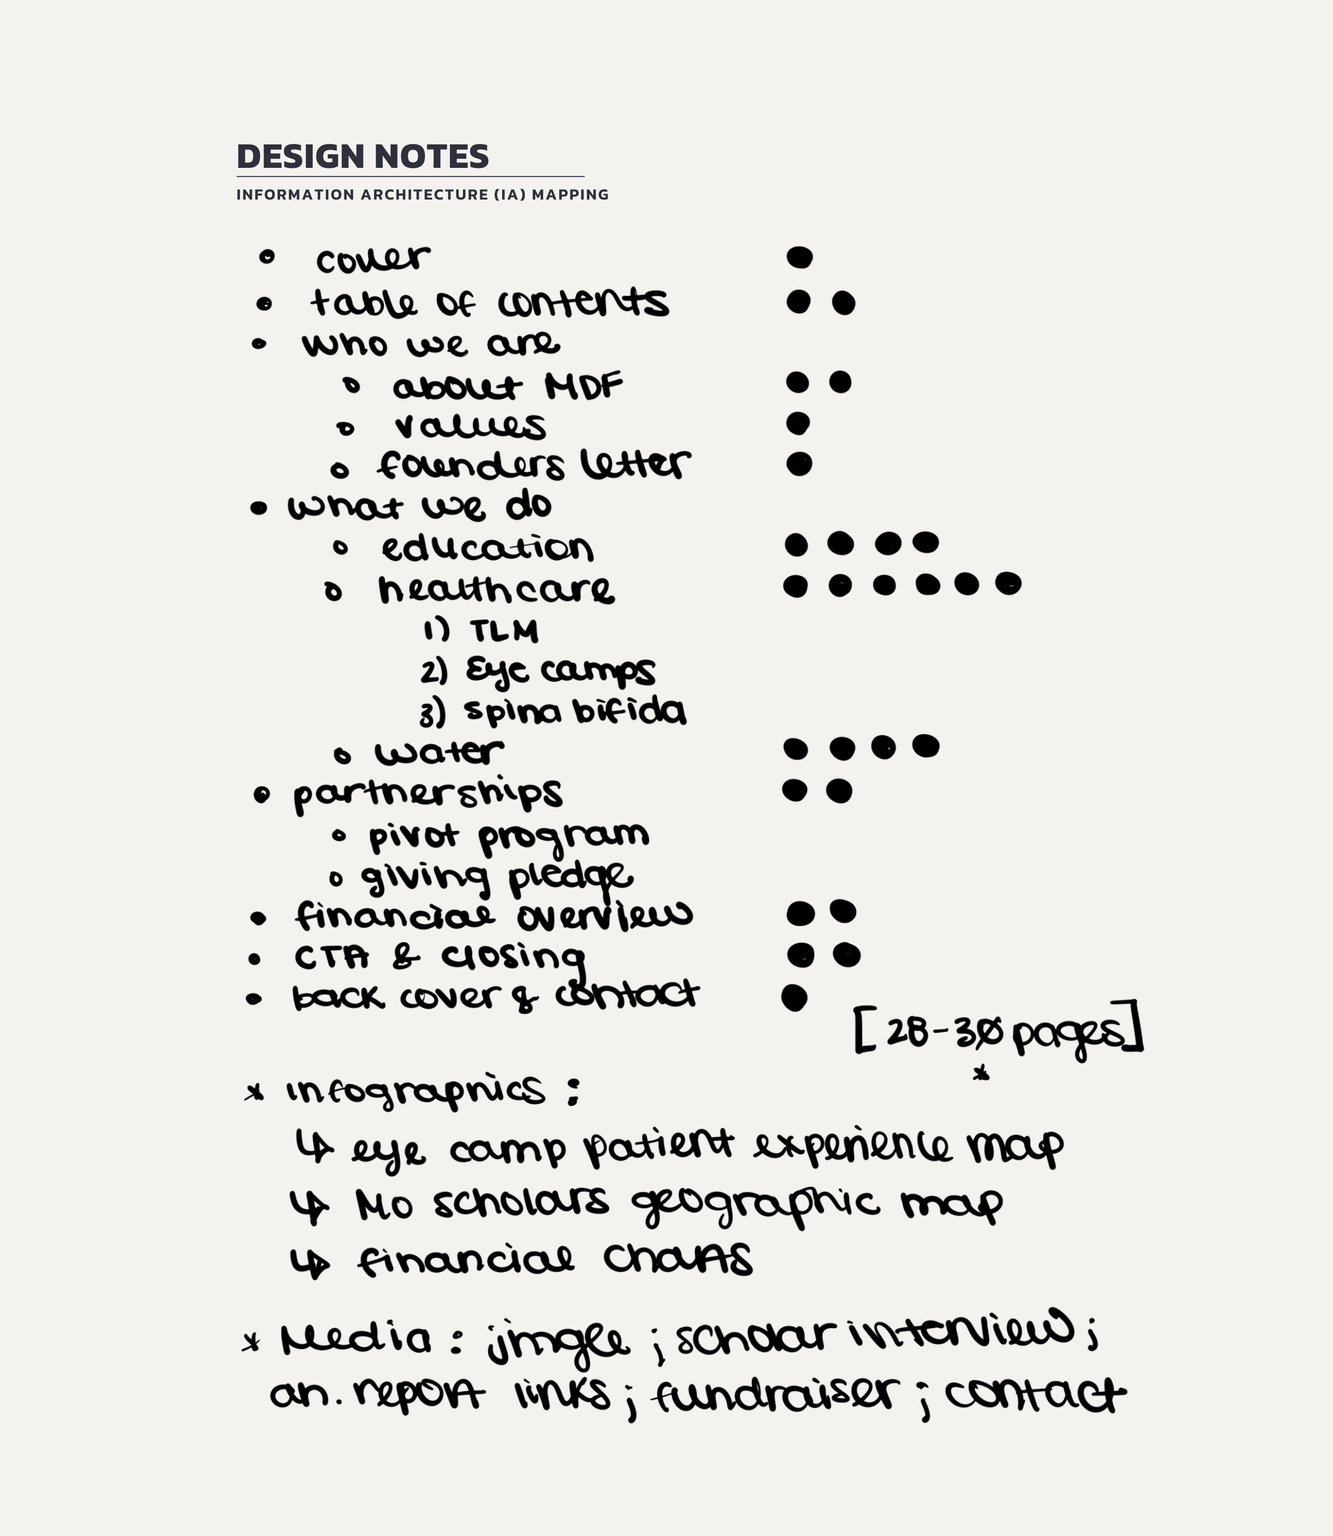 DESIGN NOTES
INFORMATION ARCHITECTURE (IA) MAPPING
• cover ●
• table of contents ● ●
• who we are
◦ about MDF ● ●
◦ values ●
◦ founders letter ●
• what we do
◦ education ● ● ● ●
◦ healthcare ● ● ● ● ● ●
1) TLM
2) Eye camps
3) spina bifida
◦ water ● ● ● ●
• partnerships ● ●
◦ pivot program
◦ giving pledge
• financial overview ● ●
• CTA & closing ● ●
• back cover & contact ●
[28-30 pages]
*
* infographics :
↳ eye camp patient experience map
↳ Mo scholars geographic map
↳ financial charts
* Media : jingle ; scholar interview ;
an. report links ; fundraiser ; contact